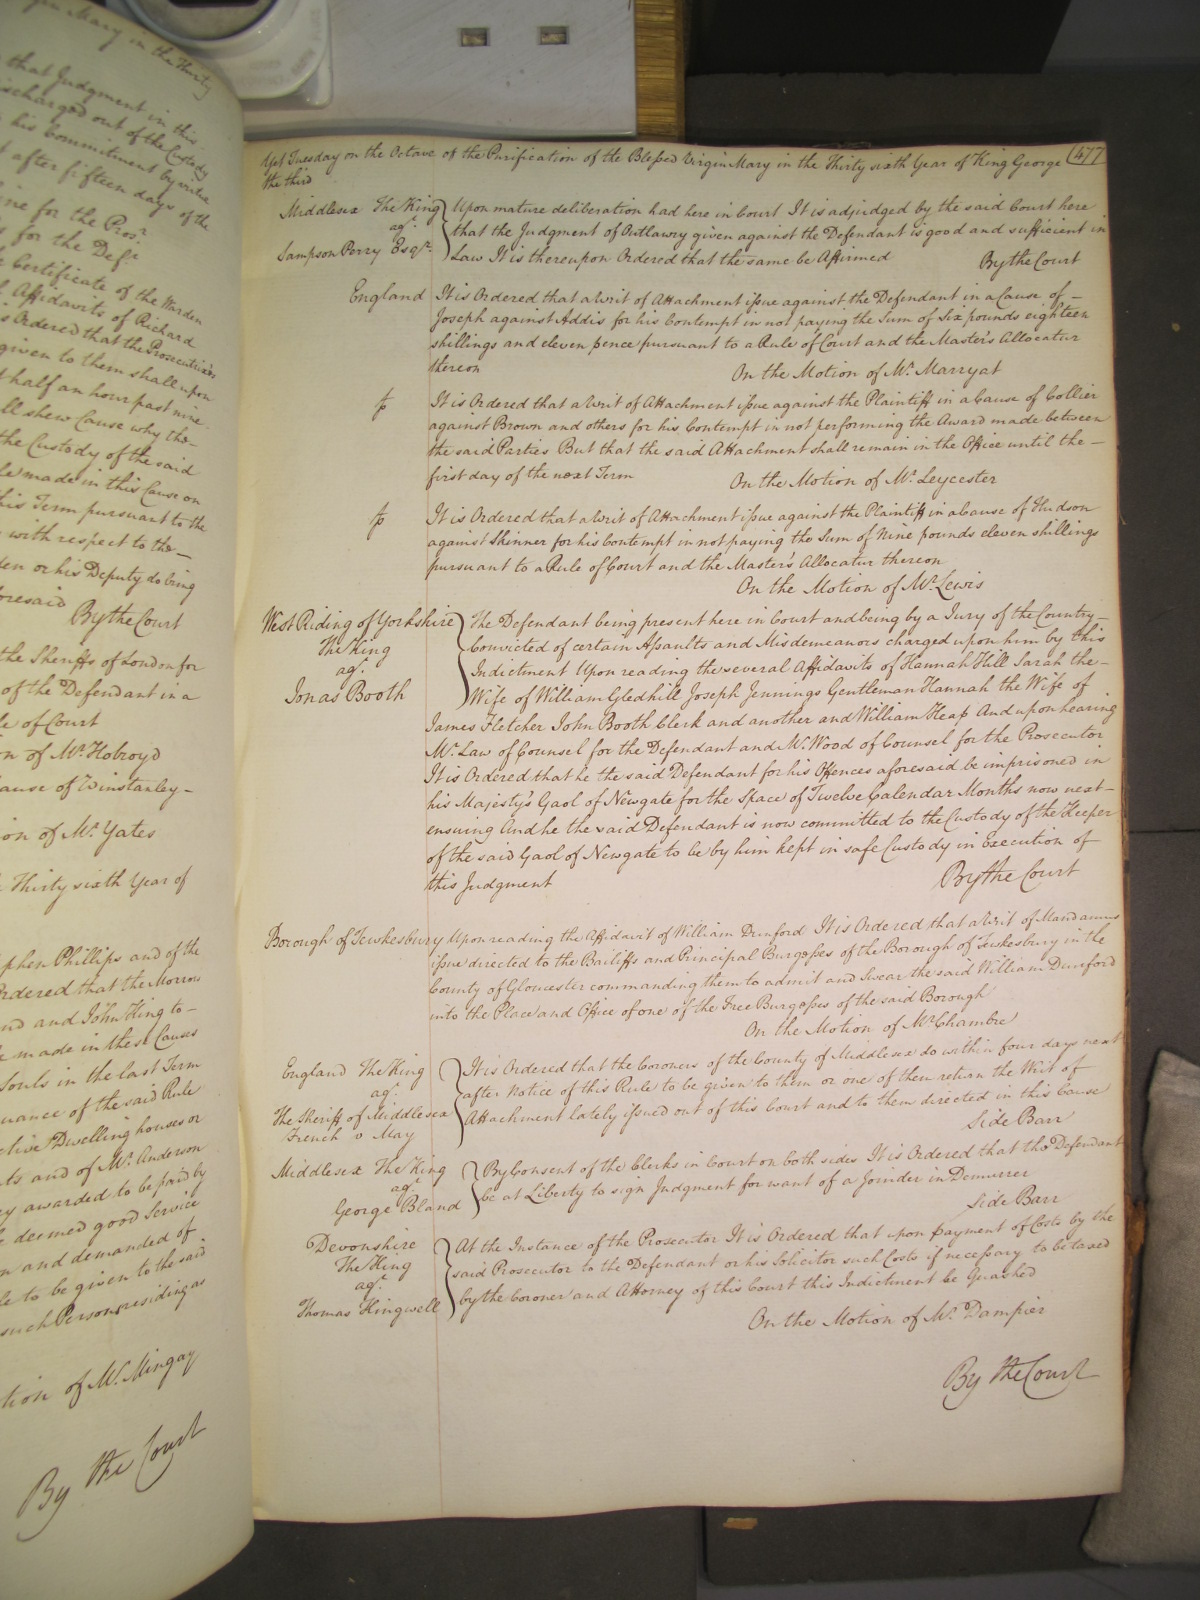 gin Mary in the Thirty
that Judgment in this
ischarged out of the Custody
his Commitment by virtue
t after fifteen days of the
ine for the Pros.r
s for the Def.t
Certificate of the Warden
Affidavits of Richard
is Ordered that the Prosecutrixes
given to them shall upon
half an hour past nine
ll shew Cause why the
the Custody of the said
le made in this Cause on
his Term pursuant to the
with respect to the
en or his Deputy do bring
foresaid By the Court
the Sheriffs of London for
of the Defendant in a
le of Court
n of Mr. Holroyd
ause of Winstanley
ion of Mr. Yates
Thirty sixth Year of
phen Phillips and of the
Ordered that the Morrow
nd and John King to
e made in these Causes
Souls in the last Term
uance of the said Rule
ctive Dwelling houses or
ts and of Mr. Anderson
ey awarded to be paid by
e deemed good Service
n and demanded of
le to be given to the said
such Persons residing as
tion of Mr. Mingay
By the Court
Yet Tuesday on the Octave of the Purification of the Blessed Virgin Mary in the Thirty sixth Year of King George 477
the third
Middlesex The King Upon mature deliberation had here in Court It is adjudged by the said Court here
agt. that the Judgment of Outlawry given against the Defendant is good and sufficient in
Sampson Perry Esqr. Law It is thereupon Ordered that the same be Affirmed By the Court
England It is Ordered that a Writ of Attachment issue against the Defendant in a Cause of
Joseph against Addis for his Contempt in not paying the Sum of Six pounds eighteen
shillings and eleven pence pursuant to a Rule of Court and the Master's Allocatur
thereon On the Motion of Mr. Marryat
It is Ordered that a Writ of Attachment issue against the Plaintiff in a Cause of Collier
against Brown and others for his Contempt in not performing the Award made between
the said Parties But that the said Attachment shall remain in the Office until the
first day of the next Term On the Motion of Mr. Leycester
It is Ordered that a Writ of Attachment issue against the Plaintiff in a Cause of Hudson
against Skinner for his Contempt in not paying the Sum of Nine pounds eleven shillings
pursuant to a Rule of Court and the Master's Allocatur thereon
On the Motion of Mr. Lewis
West Riding of Yorkshire The Defendant being present here in Court and being by a Jury of the Country
The King Convicted of certain Assaults and Misdemeanors charged upon him by this
agt. Indictment Upon reading the several Affidavits of Hannah Hill Sarah the
Jonas Booth Wife of William Gledhill Joseph Jennings Gentleman Hannah the Wife of
James Fletcher John Booth Clerk and another and William Heap And upon hearing
Mr. Law of Counsel for the Defendant and Mr. Wood of Counsel for the Prosecutor
It is Ordered that he the said Defendant for his Offences aforesaid be imprisoned in
his Majesty's Gaol of Newgate for the Space of Twelve Calendar Months now next
ensuing And he the said Defendant is now committed to the Custody of the Keeper
of the said Gaol of Newgate to be by him kept in safe Custody in Execution of
this Judgment By the Court
Borough of Tewkesbury Upon reading the Affidavit of William It is Ordered that a Writ of Mandamus
issue directed to the Bailiffs and Principal Burgesses of the Borough of Tewkesbury in the
County of Gloucester commanding them to admit and Swear the said William
into the Place and Office of one of the Free Burgesses of the said Borough
On the Motion of Mr. Chambre
England The King It is Ordered that the Coroners of the County of Middlesex do within four days next
agt. after Notice of this Rule to be given to them or one of them return the Writ of
The Sheriff of Middlesex Attachment lately issued out of this Court and to them directed in this Cause
French v May Side Barr
Middlesex The King By Consent of the Clerks in Court on both sides It is Ordered that the Defendant
agt. be at Liberty to sign Judgment for want of a Joinder in Demurrer
George Bland Side Barr
Devonshire At the Instance of the Prosecutor It is Ordered that upon payment of Costs by the
The King said Prosecutor to the Defendant or his Solicitor such Costs if necessary to be taxed
agt. by the Coroner and Attorney of this Court this Indictment be Quashed
Thomas Kingwell On the Motion of Mr. Dampier
By the Court